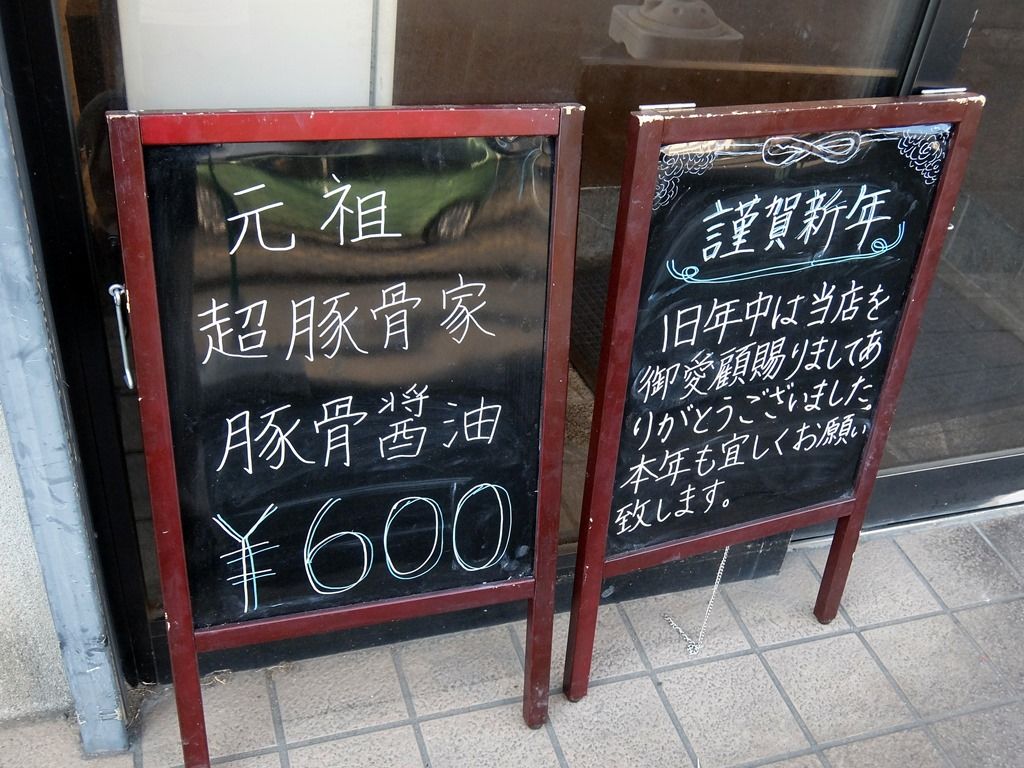 元祖
超豚骨家
豚骨醤油
¥600
謹賀新年
旧年中は当店を
御愛顧賜りましてあ
りがとうございました。
本年も宜しくお願い
致します。